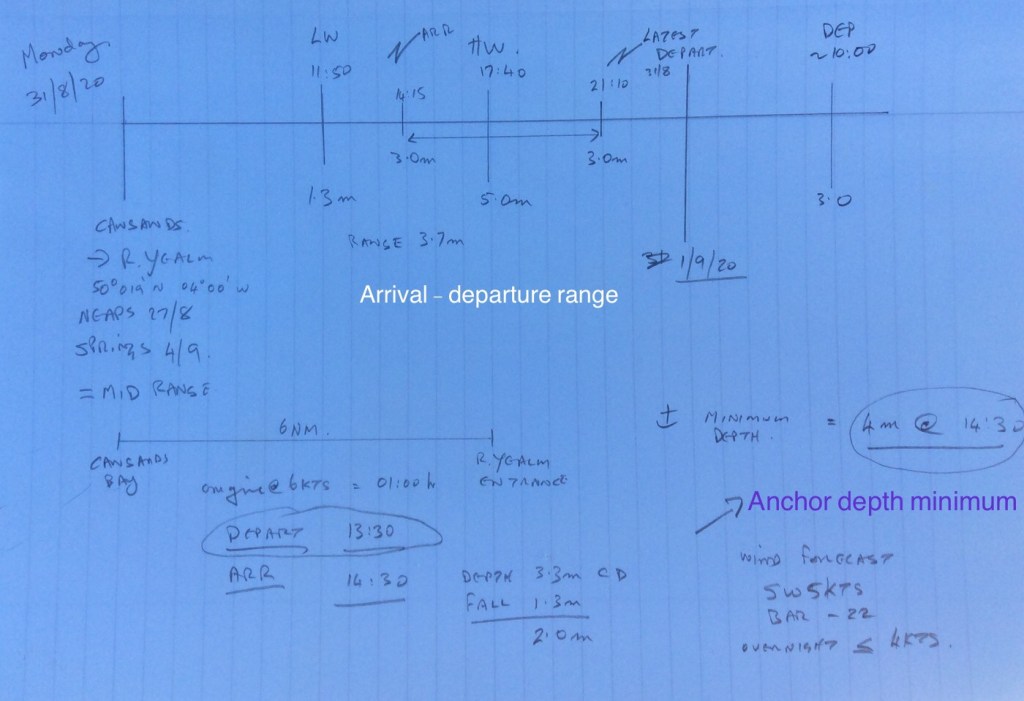 Monday
31/8/20
LW
11:50
ARR
14:15
HW.
17:40
21:10
LATEST
DEPART.
31/8
DEP
~10:00
3.0m
3.0m
1.3m
5.0m
3.0
RANGE 3.7m
1/9/20
CAWSANDS
→ R.YEALM
50°019'N 04°00'W
NEAPS 27/8
SPRINGS 4/9.
= MID RANGE
Arrival - departure range
6NM.
CAWSANDS
BAY
R.YEALM
ENTRANCE
engine@6KTS = 01:00h
DEPART 13:30
ARR 14:30
DEPTH 3.3m CD
FALL 1.3m
2.0m
± MINIMUM
DEPTH. = 4m @ 14:30
Anchor depth minimum
WIND FORECAST
SW5KTS
BAR - 22
OVERNIGHT ≤ 4KTS.